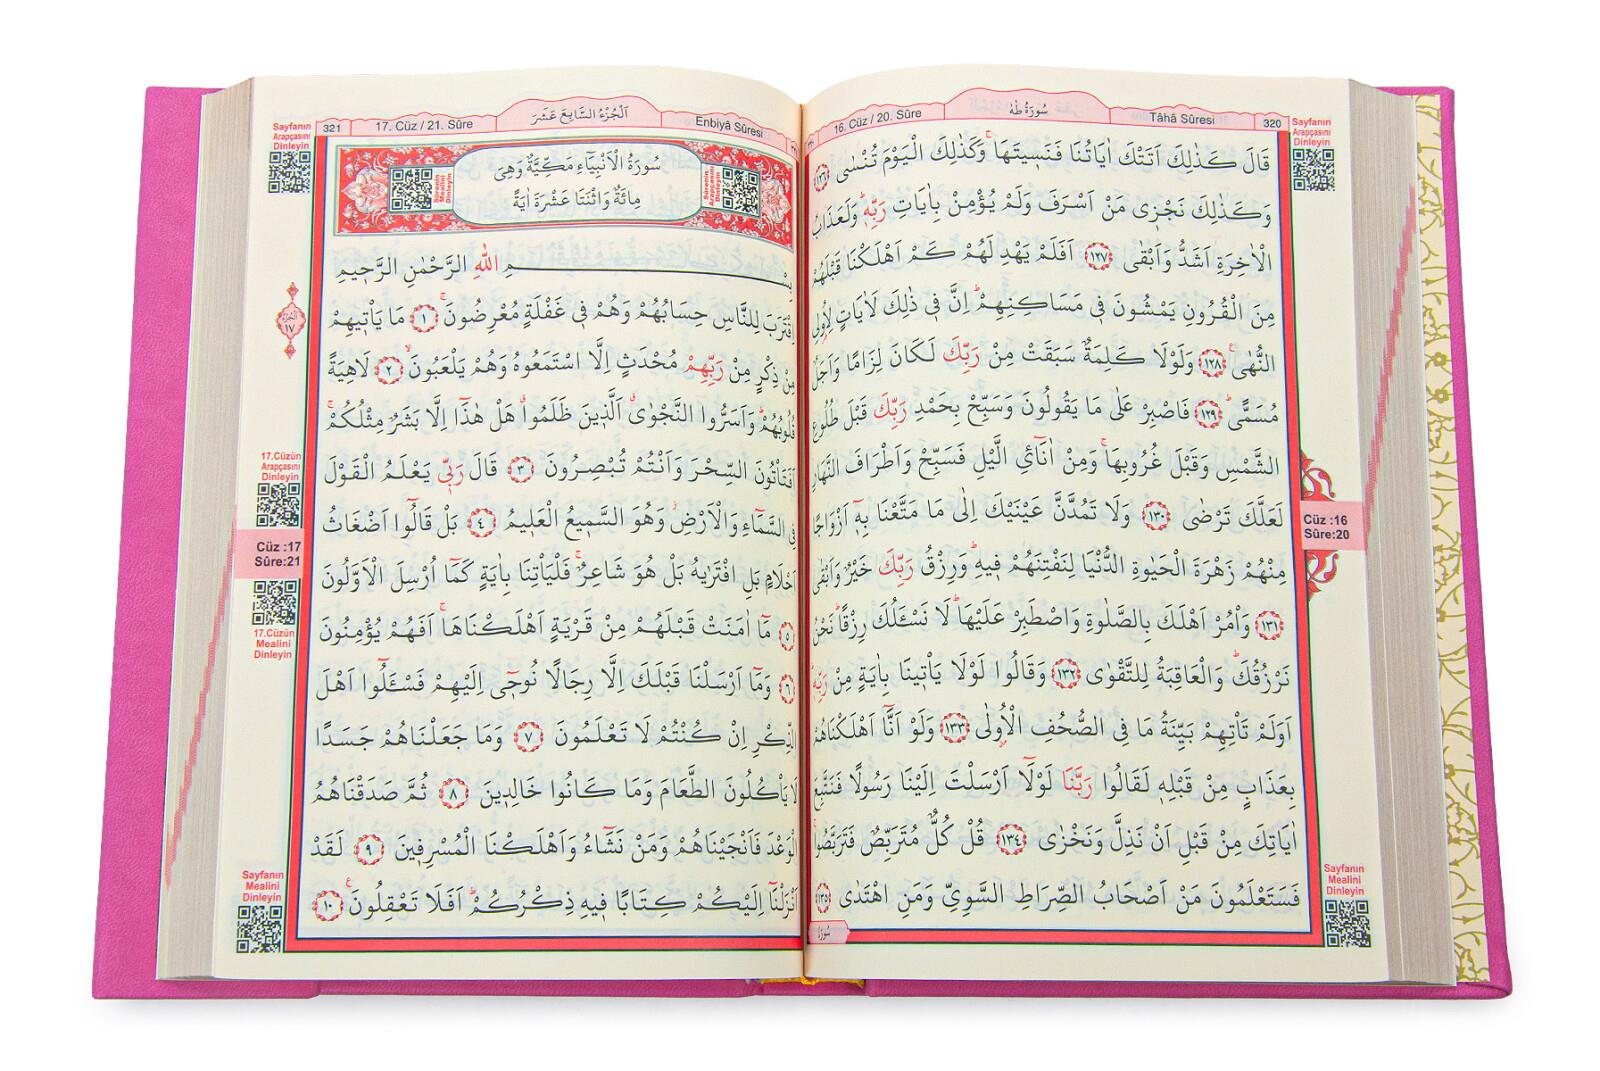 سُورَةُ طٰهٰ
16. Cüz / 20. Sûre
Tâhâ Sûresi
320
Sayfanın
Arapçasını
Dinleyin
قَالَ كَذٰلِكَ اَتَتْكَ اٰيَاتُنَا فَنَسِيتَهَاۚ وَكَذٰلِكَ الْيَوْمَ تُنْسٰى ﴿١٢٦﴾
وَكَذٰلِكَ نَجْزِي مَنْ اَسْرَفَ وَلَمْ يُؤْمِنْ بِاٰيَاتِ رَبِّهِۜ وَلَعَذَابُ
الْاٰخِرَةِ اَشَدُّ وَاَبْقٰى ﴿١٢٧﴾ اَفَلَمْ يَهْدِ لَهُمْ كَمْ اَهْلَكْنَا قَبْلَهُمْ
مِنَ الْقُرُونِ يَمْشُونَ فِي مَسَاكِنِهِمْۜ اِنَّ فِي ذٰلِكَ لَاٰيَاتٍ لِاُولِي
النُّهٰى۟ ﴿١٢٨﴾ وَلَوْلَا كَلِمَةٌ سَبَقَتْ مِنْ رَبِّكَ لَكَانَ لِزَامًا وَاَجَلٌ
مُسَمًّىۜ ﴿١٢٩﴾ فَاصْبِرْ عَلٰى مَا يَقُولُونَ وَسَبِّحْ بِحَمْدِ رَبِّكَ قَبْلَ طُلُوعِ
الشَّمْسِ وَقَبْلَ غُرُوبِهَاۚ وَمِنْ اٰنَآئِ الَّيْلِ فَسَبِّحْ وَاَطْرَافَ النَّهَارِ
لَعَلَّكَ تَرْضٰى ﴿١٣٠﴾ وَلَا تَمُدَّنَّ عَيْنَيْكَ اِلٰى مَا مَتَّعْنَا بِهِٓ اَزْوَاجًا
مِنْهُمْ زَهْرَةَ الْحَيٰوةِ الدُّنْيَا لِنَفْتِنَهُمْ فِيهِۜ وَرِزْقُ رَبِّكَ خَيْرٌ وَاَبْقٰى
﴿١٣١﴾ وَأْمُرْ اَهْلَكَ بِالصَّلٰوةِ وَاصْطَبِرْ عَلَيْهَاۜ لَا نَسْـَٔلُكَ رِزْقًاۜ نَحْنُ
نَرْزُقُكَۜ وَالْعَاقِبَةُ لِلتَّقْوٰى ﴿١٣٢﴾ وَقَالُوا لَوْلَا يَأْتِينَا بِاٰيَةٍ مِنْ رَبِّهِۜ
اَوَلَمْ تَأْتِهِمْ بَيِّنَةُ مَا فِي الصُّحُفِ الْاُولٰى ﴿١٣٣﴾ وَلَوْ اَنَّٓا اَهْلَكْنَاهُمْ
بِعَذَابٍ مِنْ قَبْلِهِ لَقَالُوا رَبَّنَا لَوْلَٓا اَرْسَلْتَ اِلَيْنَا رَسُولًا فَنَتَّبِعَ
اٰيَاتِكَ مِنْ قَبْلِ اَنْ نَذِلَّ وَنَخْزٰى ﴿١٣٤﴾ قُلْ كُلٌّ مُتَرَبِّصٌ فَتَرَبَّصُواۚ
فَسَتَعْلَمُونَ مَنْ اَصْحَابُ الصِّرَاطِ السَّوِيِّ وَمَنِ اهْتَدٰى ﴿١٣٥﴾
Cüz :16
Sûre:20
Sayfanın
Mealini
Dinleyin
سُورَة
321
17. Cüz / 21. Sûre
اَلْجُزْءُ السَّابِعَ عَشَرَ
Enbiyâ Sûresi
Sayfanın
Arapçasını
Dinleyin
سُورَةُ الْاَنْبِيَٓاءِ مَكِّيَّةٌ وَهِيَ
مِائَةٌ وَاثْنَتَا عَشْرَةَ اٰيَةً
Sûrenin
Arapçasını
Dinleyin
Sûrenin
Mealini
Dinleyin
بِسْمِ اللّٰهِ الرَّحْمٰنِ الرَّحِيمِ
اِقْتَرَبَ لِلنَّاسِ حِسَابُهُمْ وَهُمْ فِي غَفْلَةٍ مُعْرِضُونَۚ ﴿١﴾ مَا يَأْتِيهِمْ
مِنْ ذِكْرٍ مِنْ رَبِّهِمْ مُحْدَثٍ اِلَّا اسْتَمَعُوهُ وَهُمْ يَلْعَبُونَۙ ﴿٢﴾ لَاهِيَةً
قُلُوبُهُمْۜ وَاَسَرُّوا النَّجْوٰىۗ اَلَّذِينَ ظَلَمُواۗ هَلْ هٰذَٓا اِلَّا بَشَرٌ مِثْلُكُمْۚ
اَفَتَأْتُونَ السِّحْرَ وَاَنْتُمْ تُبْصِرُونَ ﴿٣﴾ قَالَ رَبِّي يَعْلَمُ الْقَوْلَ
فِي السَّمَٓاءِ وَالْاَرْضِۘ وَهُوَ السَّمِيعُ الْعَلِيمُ ﴿٤﴾ بَلْ قَالُٓوا اَضْغَاثُ
اَحْلَامٍ بَلِ افْتَرٰيهُ بَلْ هُوَ شَاعِرٌۚ فَلْيَأْتِنَا بِاٰيَةٍ كَمَٓا اُرْسِلَ الْاَوَّلُونَ
﴿٥﴾ مَٓا اٰمَنَتْ قَبْلَهُمْ مِنْ قَرْيَةٍ اَهْلَكْنَاهَاۚ اَفَهُمْ يُؤْمِنُونَ
﴿٦﴾ وَمَٓا اَرْسَلْنَا قَبْلَكَ اِلَّا رِجَالًا نُوحِٓي اِلَيْهِمْ فَسْـَٔلُٓوا اَهْلَ
الذِّكْرِ اِنْ كُنْتُمْ لَا تَعْلَمُونَ ﴿٧﴾ وَمَا جَعَلْنَاهُمْ جَسَدًا
لَا يَأْكُلُونَ الطَّعَامَ وَمَا كَانُوا خَالِدِينَ ﴿٨﴾ ثُمَّ صَدَقْنَاهُمُ
الْوَعْدَ فَاَنْجَيْنَاهُمْ وَمَنْ نَشَٓاءُ وَاَهْلَكْنَا الْمُسْرِفِينَ ﴿٩﴾ لَقَدْ
اَنْزَلْنَٓا اِلَيْكُمْ كِتَابًا فِيهِ ذِكْرُكُمْۜ اَفَلَا تَعْقِلُونَ۟ ﴿١٠﴾
اَلْجُزْءُ
١٧
17.Cüzün
Arapçasını
Dinleyin
Cüz :17
Sûre:21
17.Cüzün
Mealini
Dinleyin
Sayfanın
Mealini
Dinleyin